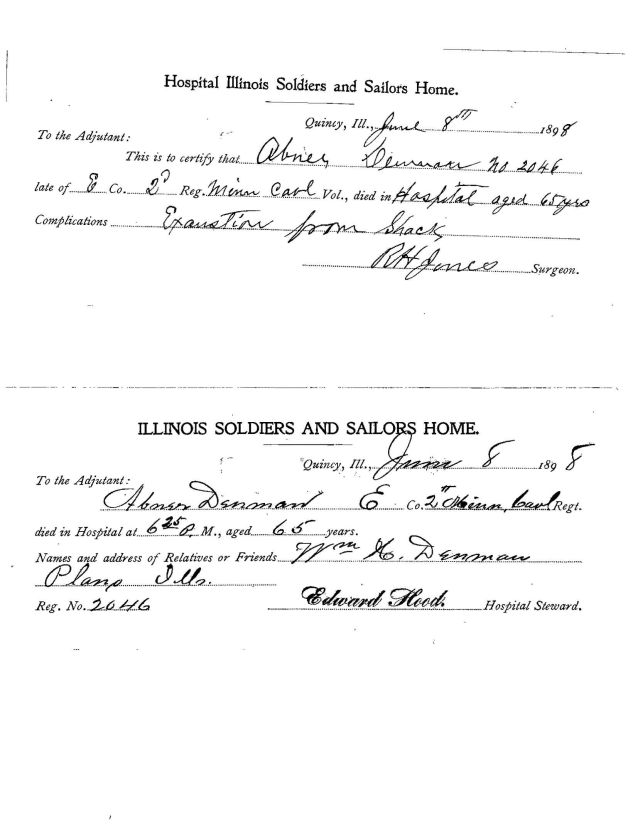 Hospital Illinois Soldiers and Sailors Home.
Quincy, Ill., June 8th 1898
To the Adjutant:
This is to certify that Abner Denman No 2046
late of E Co. 2d Reg. Minn Cavl Vol., died in Hospital aged 65 yrs
Complications Exaustion from Shack
RH Jones Surgeon.
ILLINOIS SOLDIERS AND SAILORS HOME.
Quincy, Ill., June 8 1898
To the Adjutant:
Abner Denman E Co. 2d Minn, Cavl Regt.
died in Hospital at 6 25 P. M., aged 65 years.
Names and address of Relatives or Friends Wm H. Denman
Plano Ills.
Reg. No. 2046 Edward Flood. Hospital Steward.